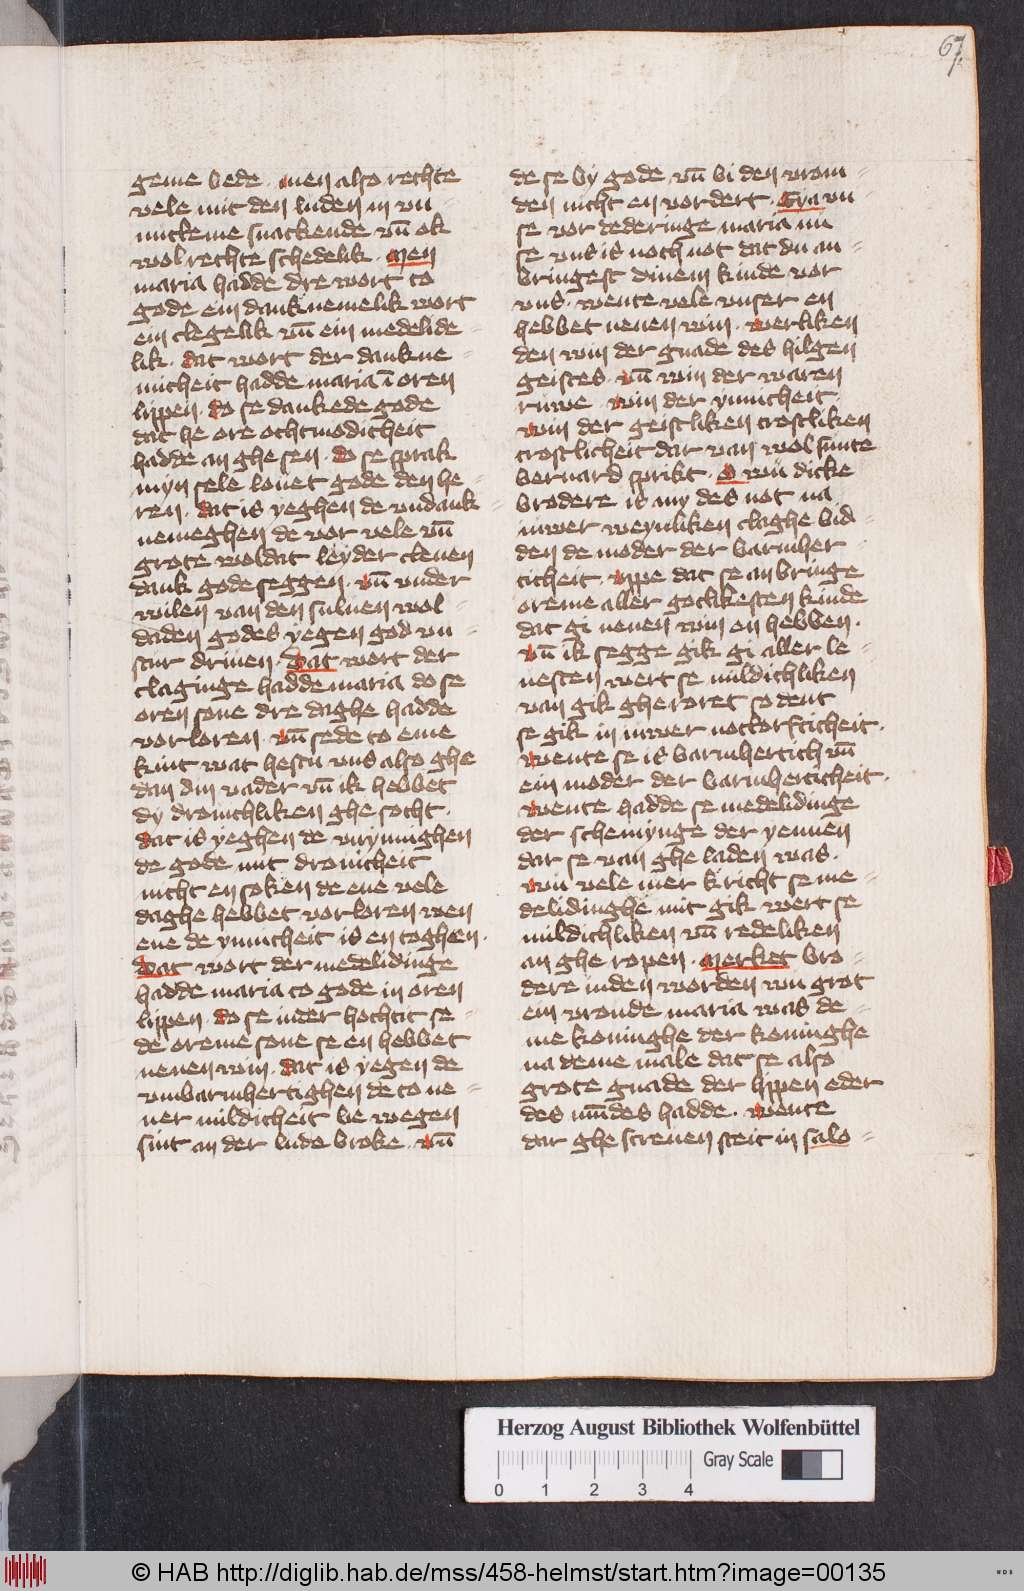 67
geme bede. men also rechte
vele mit den luden in un
nutteme snackende vn̄ ok
wol rechte schedelik. Men
maria hadde dre wort to
gode ein danknemelik wort
ein clegelik vn̄ ein medelide=
lik. dat wort der dankne=
micheit hadde maria ī oren
lippen. do se dankede gode
dat he ore othmodicheit
hadde an ghe sen. do se sprak
myn sele louet gode den he=
ren. dat is yeghen de vndank=
nemeghen de vor vele vn̄
grote woldat leyder clenen
dank gode seggen. vn̄ vnder
wilen van den suluen wol=
daden godes yegen god vn=
stur driuen. Dat wort der
claginge hadde maria do se
oren sone dre daghe hadde
vorloren. vn̄ sede to eme
kint wat hestu vns also ghe
dan din vader vn̄ ik hebbet
dy drouichliken ghe socht.
dat is yeghen de vnynnighen
de gode mit drouicheit
nicht en soken de ene vele
daghe hebbet vorloren wen
ene de ynnicheit is en toghen.
Dat wort der medelidinge
hadde maria to gode in oren
lippen. do se in der hochtit se=
de oreme sone se en hebbet
nenen win. dat is yegen de
vnbarmhertighen de to ne=
ner mildicheit be wegen
sint an der lude broke. vn̄
de se by gode vn̄ bi den vrom=
den nicht en vordert. Eya vn
se vor dederinge maria nu
se vns is noch not dat du an=
bringest dinem kinde vor
vns. wente vele vnser en
hebbet nenen win. werliken
den win der gnade des hilgen
geistes. vn̄ win der waren
ruwe. win der ynnicheit.
win der geistliken trostliken
trostlicheit dar van wol sunte
bernard sprikt. O wu dicke
brodere is my des not na
iuwer weynliken claghe bid=
den de moder der barmher
ticheit. uppe dat se an bringe
oreme aller gotlikesten kinde
dat gi nenen win en hebben.
vn̄ ik segge gik gi aller le=
uesten wert se mildichliken
van gik ghe roret so deit
se gik in iuwer nottorfticheit.
wente se is barmhertich vn̄
ein moder der barmherticheit.
wente hadde se medelidinge
der schemynge der yennen
dar se van ghe laden was.
wu vele mer kricht se me=
delidinghe mit gik wert se
mildichliken vn̄ redeliken
an ghe ropen. Merket bro=
dere in den worden wu grot
ein vronde maria was de=
me koninghe der koninghe
na deme male dat se also
grote gnade der lippen eder
des mundes hadde. wente
dar ghe screuen steit in salo=
Herzog August Bibliothek Wolfenbüttel
Gray Scale
0 1 2 3 4
© HAB http://diglib.hab.de/mss/458-helmst/start.htm?image=00135